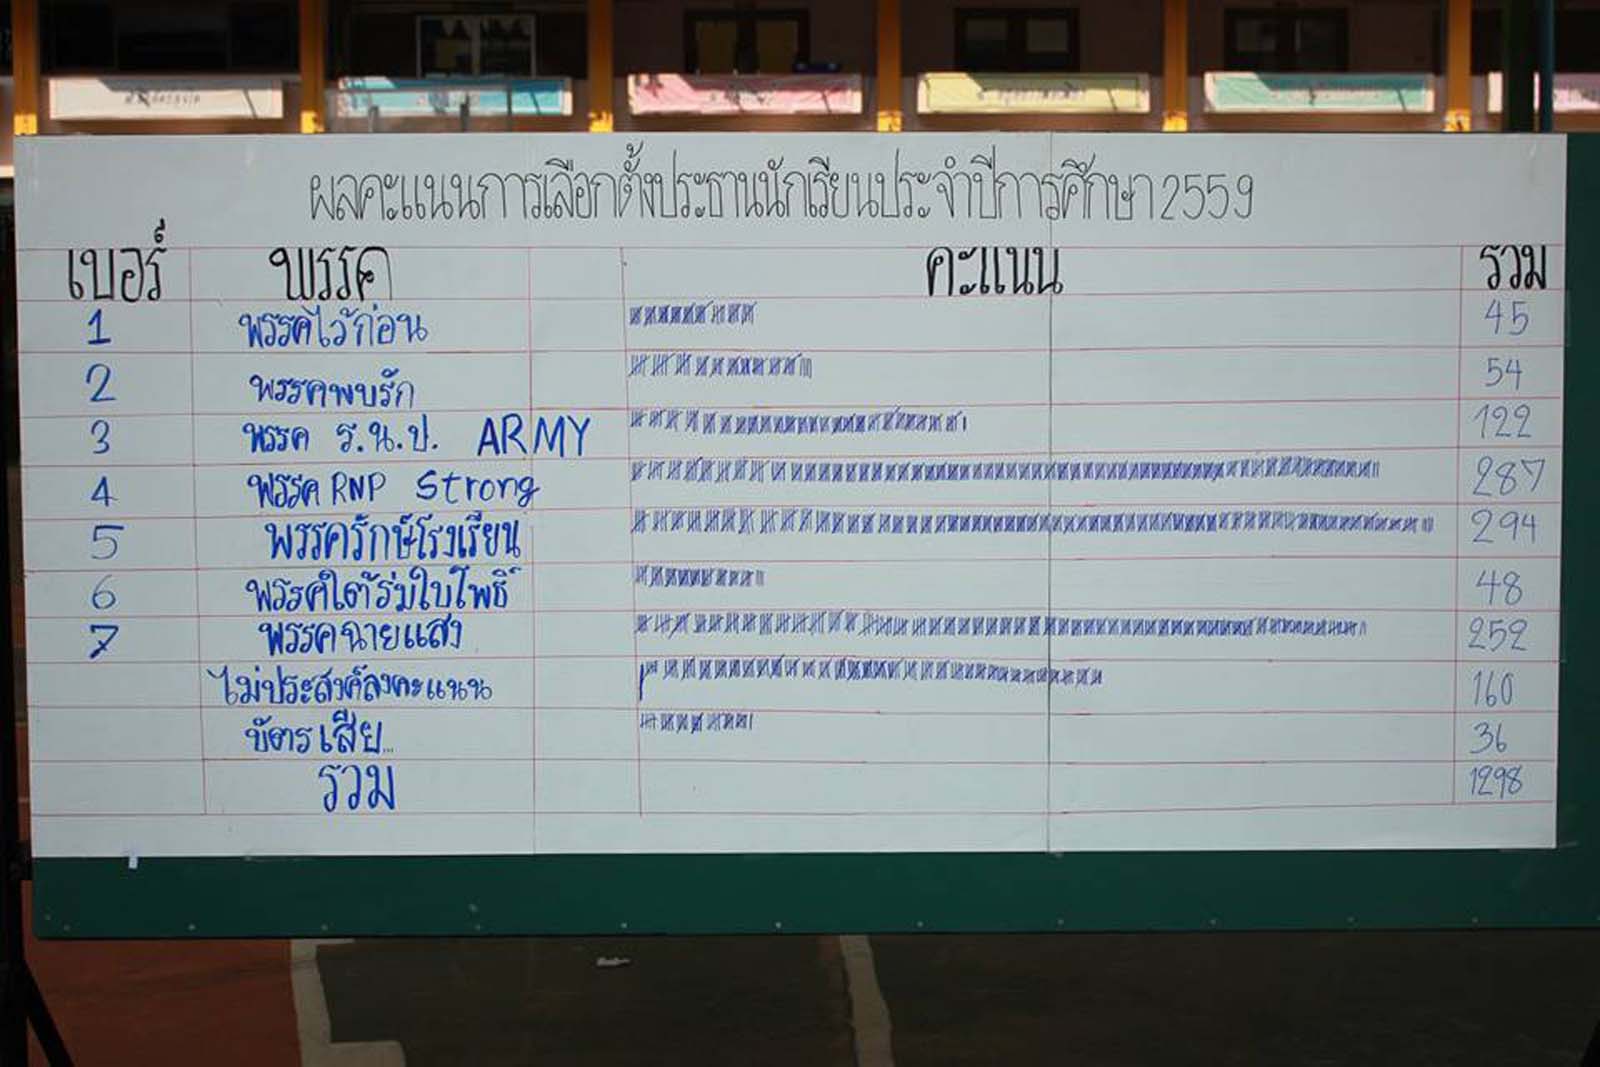 ผลคะแนนการเลือกตั้งประธานนักเรียนประจำปีการศึกษา 2559
เบอร์ พรรค คะแนน รวม
1 พรรคไว้ก่อน 45
2 พรรคพบรัก 54
3 พรรค ร.น.ป. ARMY 122
4 พรรค RNP Strong 287
5 พรรครักษ์โรงเรียน 294
6 พรรคใต้ร่มใบโพธิ์ 48
7 พรรคฉายแสง 252
ไม่ประสงค์ลงคะแนน 160
บัตรเสีย... 36
รวม 1298